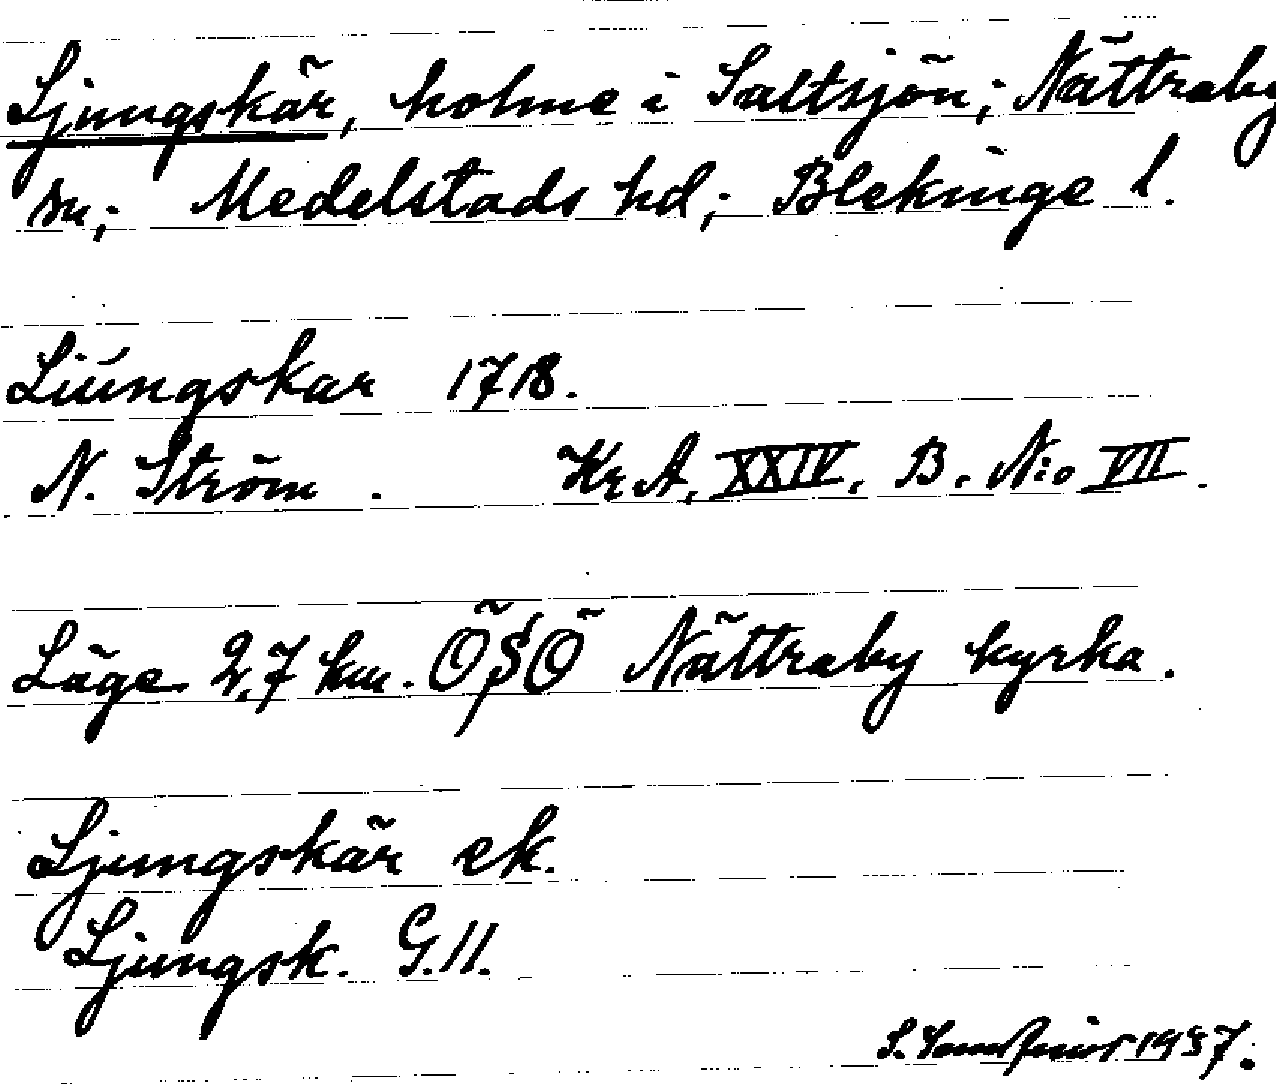 Ljungskär, holme i Saltsjön; Nättraby
sn; Medelstads hd; Blekinge l.
Liúngskar 1718.
N. Ström. Kr. A, XXIV, B. N:o VII.
Läge 2,7 km. ÖSÖ Nättraby kyrka.
Ljungskär ek.
Ljungsk. G. 11.
S. 1937.